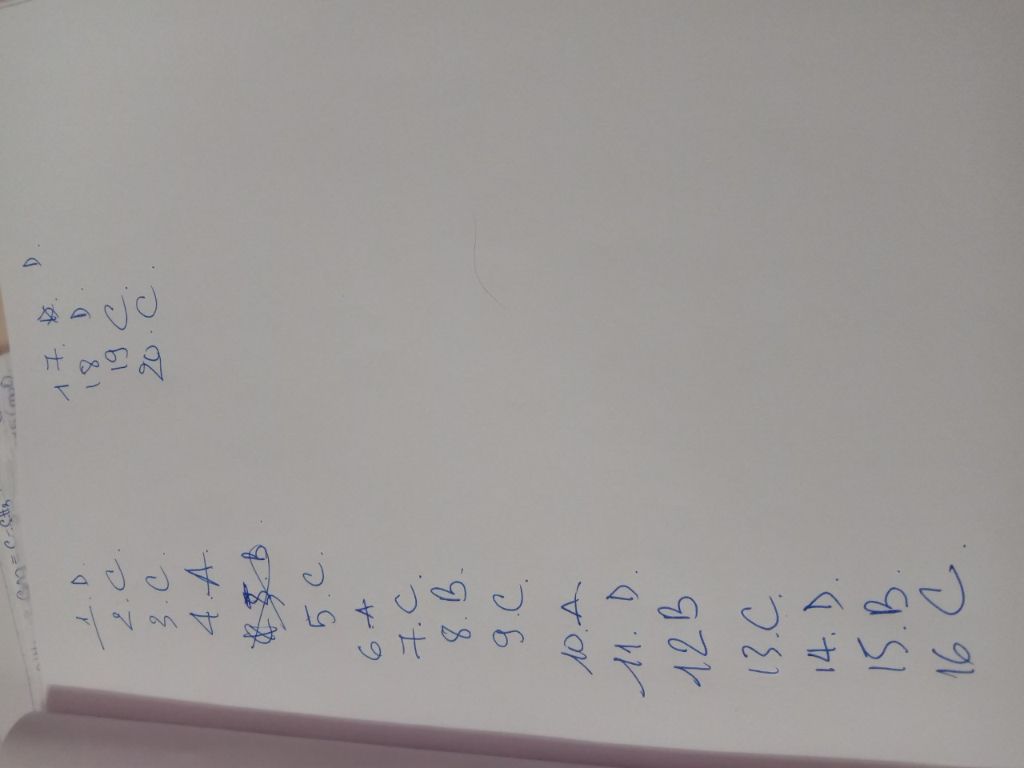 1. D.
2. C.
3. C.
4 A.
5. C.
6 A
7. C.
8. B.
9. C.
10. A.
11. D.
12 B
13. C.
14. D.
15. B.
16 C.
17. D.
18 D.
19 C.
20. C.